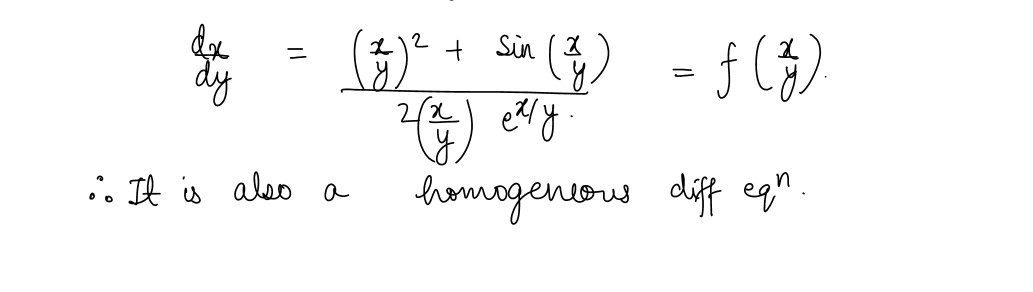 dx/dy = ((x/y)² + sin(x/y)) / (2(x/y) e^(x/y)) = f(x/y).
∴ It is also a homogeneous diff eqⁿ.